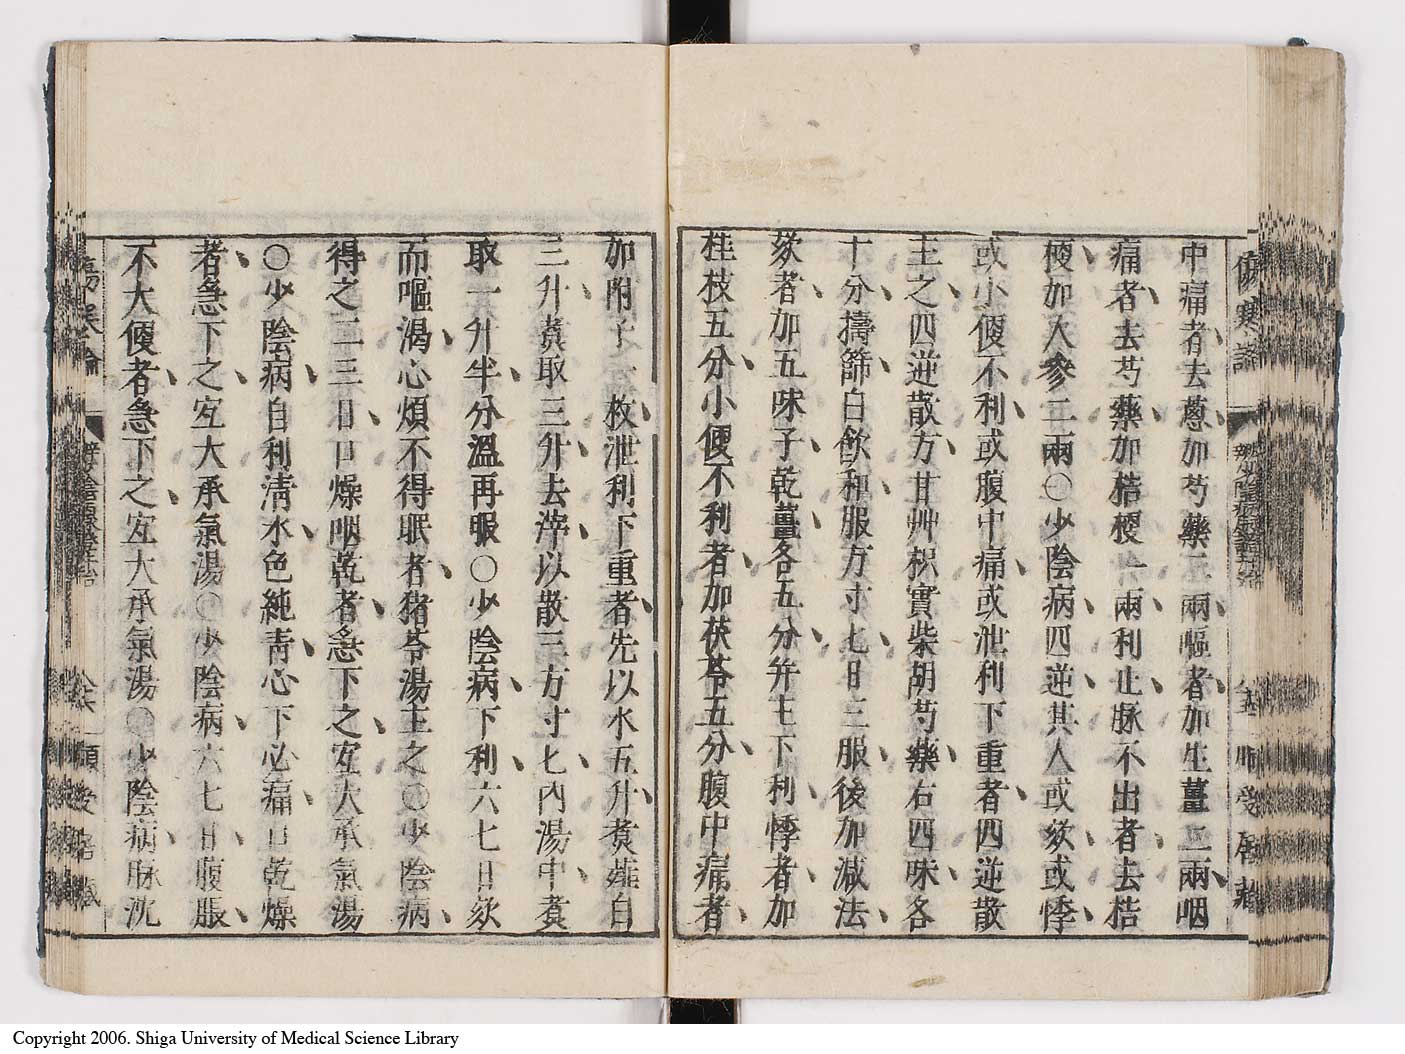 傷寒論
中痛者去蔥加芍藥二兩嘔者加生薑二兩咽
痛者去芍藥加桔梗一兩利止脉不出者去桔
梗加人參二兩○少陰病四逆其人或欬或悸
或小便不利或腹中痛或泄利下重者四逆散
主之四逆散方甘艸枳實柴胡芍藥右四味各
十分擣篩白飲和服方寸匕日三服後加減法
欬者加五味子乾薑各五分并主下利悸者加
桂枝五分小便不利者加茯苓五分腹中痛者
加附子一枚泄利下重者先以水五升煮薤白
三升煮取三升去滓以散三方寸匕內湯中煮
取一升半分溫再服○少陰病下利六七日欬
而嘔渴心煩不得眠者猪苓湯主之○少陰病
得之二三日口燥咽乾者急下之宜大承氣湯
○少陰病自利淸水色純靑心下必痛口乾燥
者急下之宜大承氣湯○少陰病六七日腹脹
不大便者急下之宜大承氣湯○少陰病脉沈
Copyright 2006. Shiga University of Medical Science Library